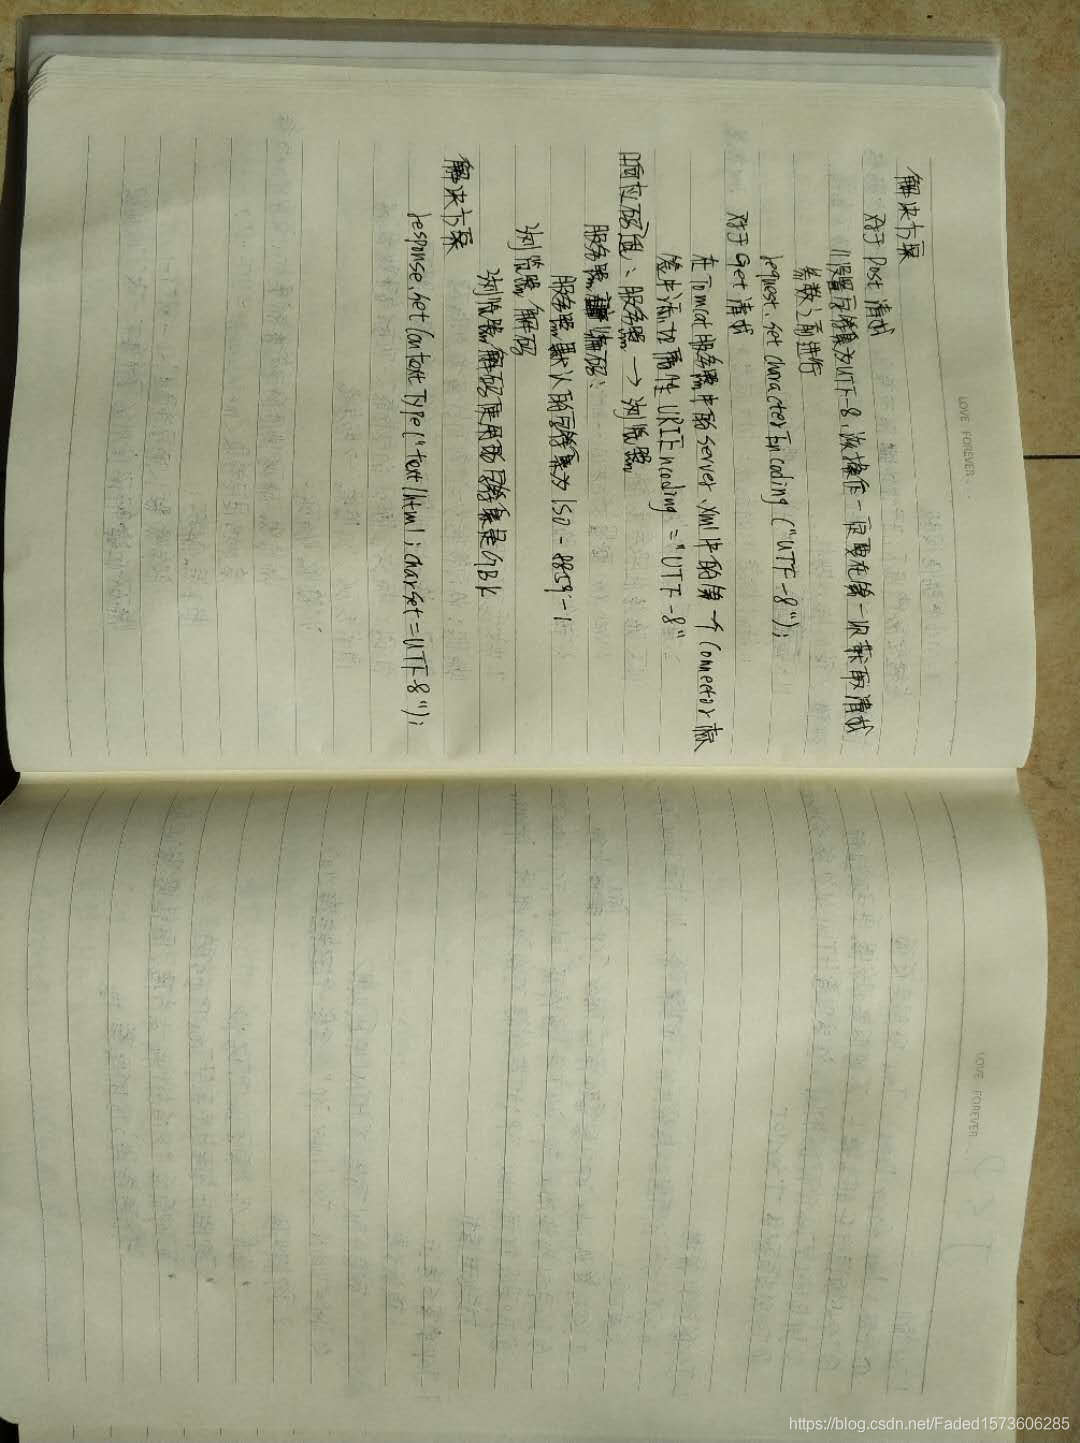 LOVE FOREVER...
解决方案
对于 Post 请求
//设置字符集为UTF-8,该操作一定要在第一次获取请求
参数之前进行
request.setCharacterEncoding("UTF-8");
对于Get请求
在Tomcat服务器中的server.xml中的第一个Connector标
签中添加属性URIEncoding="UTF-8"
响应码: 服务器→浏览器
服务器 编码:
服务器默认的字符集为ISO-8859-1
浏览器 解码
浏览器解码使用的字符集是GBK
解决方案
response.setContextType("text/html;charset=UTF-8");
LOVE FOREVER...
https://blog.csdn.net/Faded1573606285